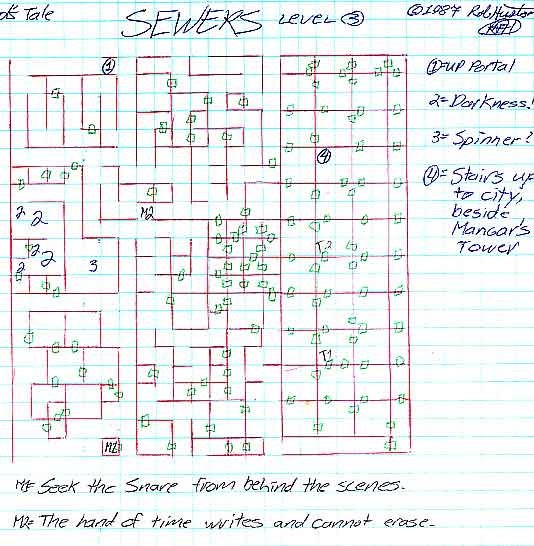 d's Tale
SEWERS LEVEL ③
©1987 Rob Hustor
RFH
①=UP Portal
2=Darkness!
3=Spinner?
④=Stairs up
to city,
beside
Mangar's
Tower
1
4
M2
2
2
2
2
2
3
T.2
T.1
M1
M1= Seek the Snare from behind the scenes.
M2= The hand of time writes and cannot erase.